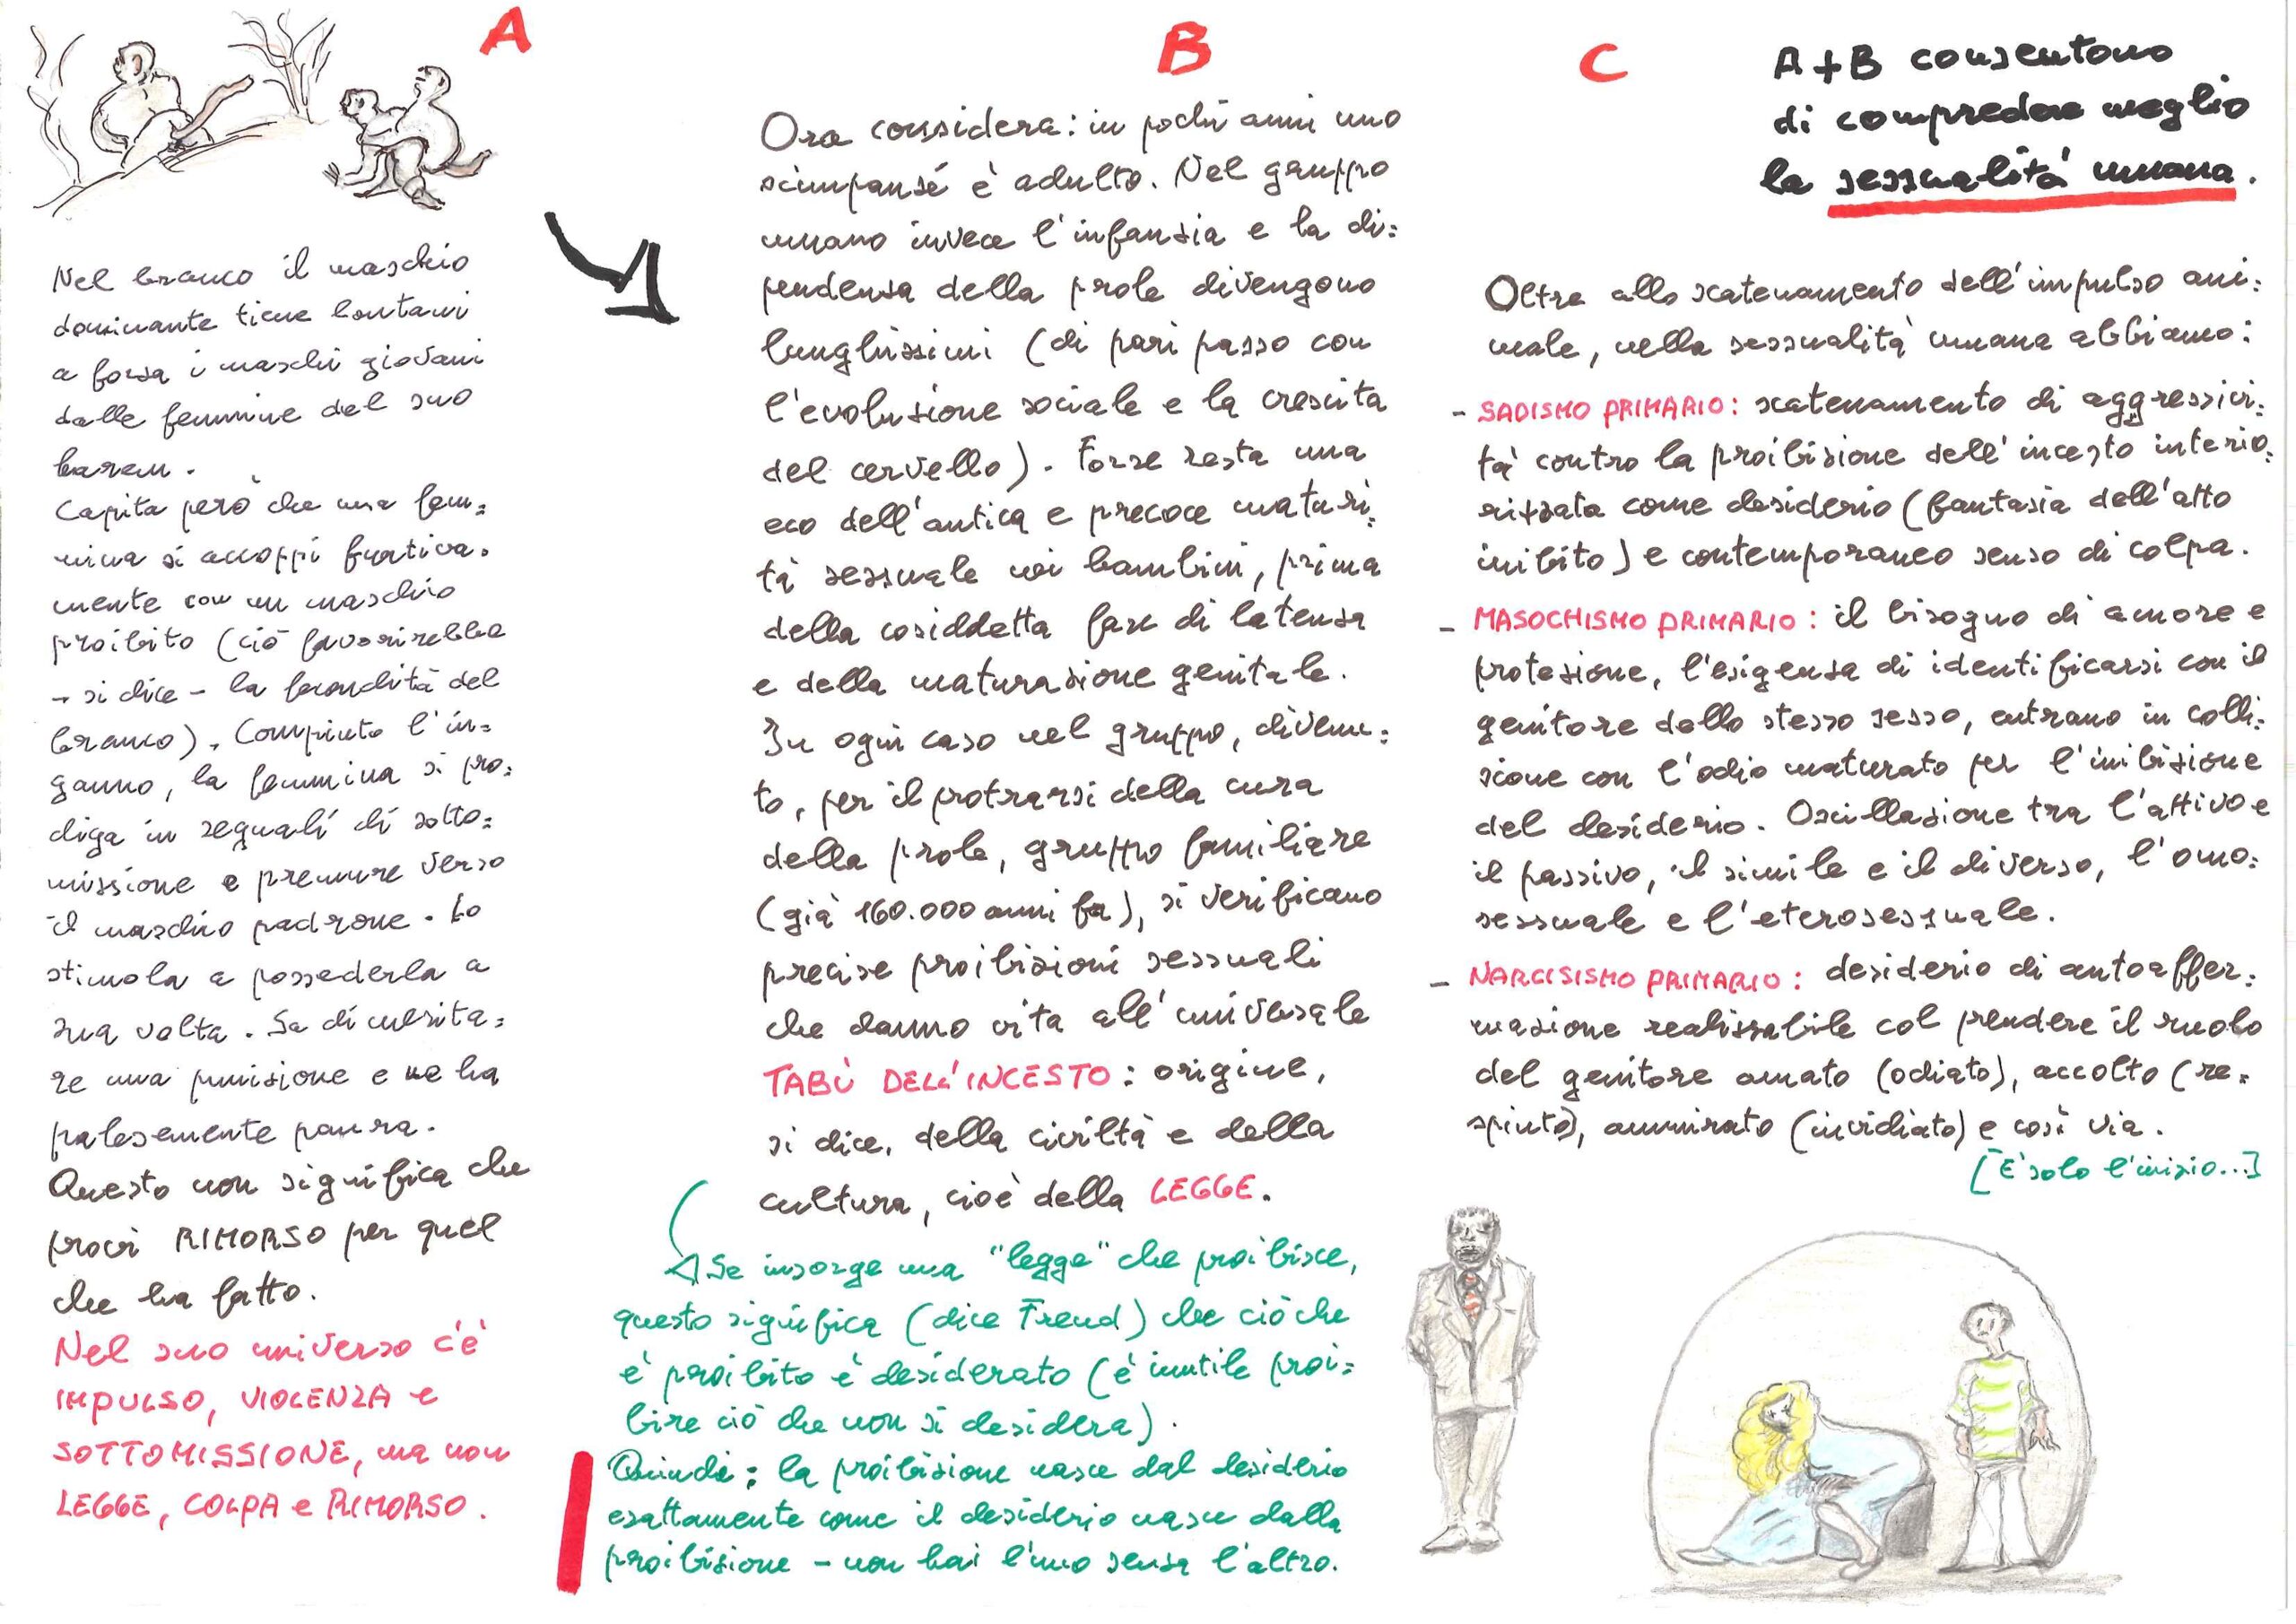 A
Nel branco il maschio
dominante tiene lontani
a forza i maschi giovani
dalle femmine del suo
harem.
Capita però che una fem=
mina si accoppi furtiva=
mente con un maschio
proibito (ciò favorirebbe
- si dice - la fecondità del
branco). Compiuto l'in=
ganno, la femmina si pro=
diga in segnali di sotto=
missione e premure verso
il maschio padrone. Lo
stimola a possederla a
sua volta. Sa di merita=
re una punizione e ne ha
palesemente paura.
Questo non significa che
provi RIMORSO per quel
che ha fatto.
Nel suo universo c'è
IMPULSO, VIOLENZA e
SOTTOMISSIONE, ma non
LEGGE, COLPA e RIMORSO.
B
Ora considera: in pochi anni uno
scimpansé è adulto. Nel gruppo
umano invece l'infanzia e la di=
pendenza della prole divengono
lunghissimi (di pari passo con
l'evoluzione sociale e la crescita
del cervello). Forse resta una
eco dell'antica e precoce maturi=
tà sessuale nei bambini, prima
della cosiddetta fase di latenza
e della maturazione genitale.
In ogni caso nel gruppo, divenu=
to, per il protrarsi della cura
della prole, gruppo familiare
(già 160.000 anni fa), si verificano
precise proibizioni sessuali
che danno vita all'universale
TABÙ DELL'INCESTO: origine,
si dice, della civiltà e della
cultura, cioè della LEGGE.
Se insorge una "legge" che proibisce,
questo significa (dice Freud) che ciò che
è proibito è desiderato (è inutile proi=
bire ciò che non si desidera).
Quindi: la proibizione nasce dal desiderio
esattamente come il desiderio nasce dalla
proibizione - non hai l'uno senza l'altro.
C
A+B consentono
di compredere meglio
la sessualità umana.
Oltre allo scatenamento dell'impulso ani=
male, nella sessualità umana abbiamo:
- SADISMO PRIMARIO: scatenamento di aggressivi=
tà contro la proibizione dell'incesto interio=
rizzata come desiderio (fantasia dell'atto
inibito) e contemporaneo senso di colpa.
- MASOCHISMO PRIMARIO: il bisogno di amore e
protezione, l'esigenza di identificarsi con il
genitore dello stesso sesso, entrano in colli=
sione con l'odio maturato per l'inibizione
del desiderio. Oscillazione tra l'attivo e
il passivo, il simile e il diverso, l'omo=
sessuale e l'eterosessuale.
- NARCISISMO PRIMARIO: desiderio di autoaffer=
mazione realizzabile col prendere il ruolo
del genitore amato (odiato), accolto (re=
spinto), ammirato (invidiato) e così via.
[È solo l'inizio...]